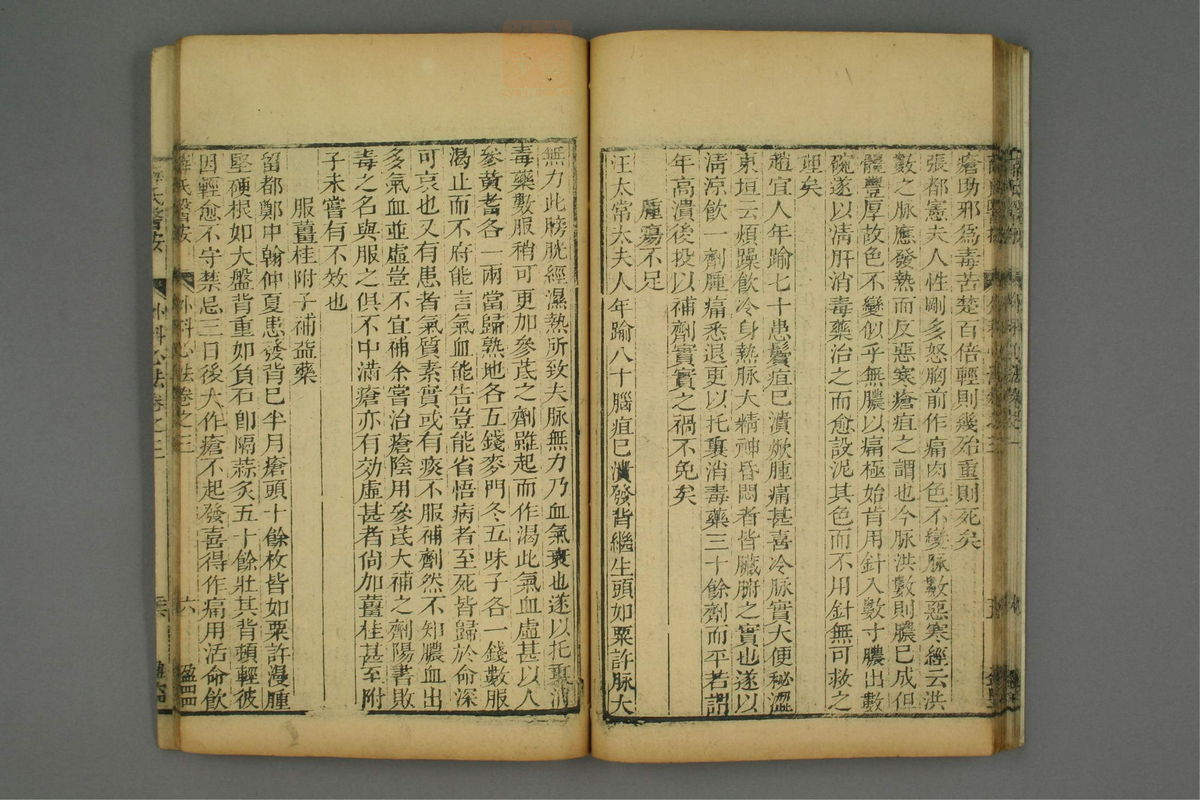 瘡助邪爲毒苦楚百倍輕則幾殆重則死矣
張都憲夫人性剛多怒胸前作痛肉色不變脉數惡寒經云洪
數之脉應發熱而反惡寒瘡疽之謂也今脉洪數則膿已成但
體豐厚故色不變似乎無膿以痛極始肯用針入數寸膿出數
碗遂以淸肝消毒藥治之而愈設泥其色而不用針無可救之
理矣
趙宜人年踰七十患鬢疽已潰焮腫痛甚喜冷脉實大便秘澀
東垣云煩躁飲冷身熱脉大精神昏悶者皆臟腑之實也遂以
淸凉飲一劑腫痛悉退更以托裏消毒藥三十餘劑而平若謂
年高潰後投以補劑實實之禍不免矣
腫瘍不足
汪太常太夫人年踰八十腦疽已潰發背繼生頭如粟許脉大
無力此膀胱經濕熱所致夫脉無力乃血氣衰也遂以托裏消
毒藥數服稍可更加參芪之劑雖起而作渴此氣血虛甚以人
參黃耆各一兩當歸熟地各五錢麥門冬五味子各一錢數服
渴止而不府能言氣血能告豈能省悟病者至死皆歸於命深
可哀也又有患者氣質素實或有痰不服補劑然不知膿血出
多氣血並虛豈不宜補余嘗治瘡陰用參芪大補之劑陽書敗
毒之名與服之俱不中滿瘡亦有効虛甚者尙加薑桂甚至附
子未嘗有不效也
服薑桂附子補益藥
留都鄭中翰仲夏患發背已半月瘡頭十餘枚皆如粟許漫腫
堅硬根如大盤背重如負石卽隔蒜灸五十餘壯其背頓輕彼
因輕愈不守禁忌三日後大作瘡不起發喜得作痛用活命飲
薛氏醫按
外科心法卷之三
六